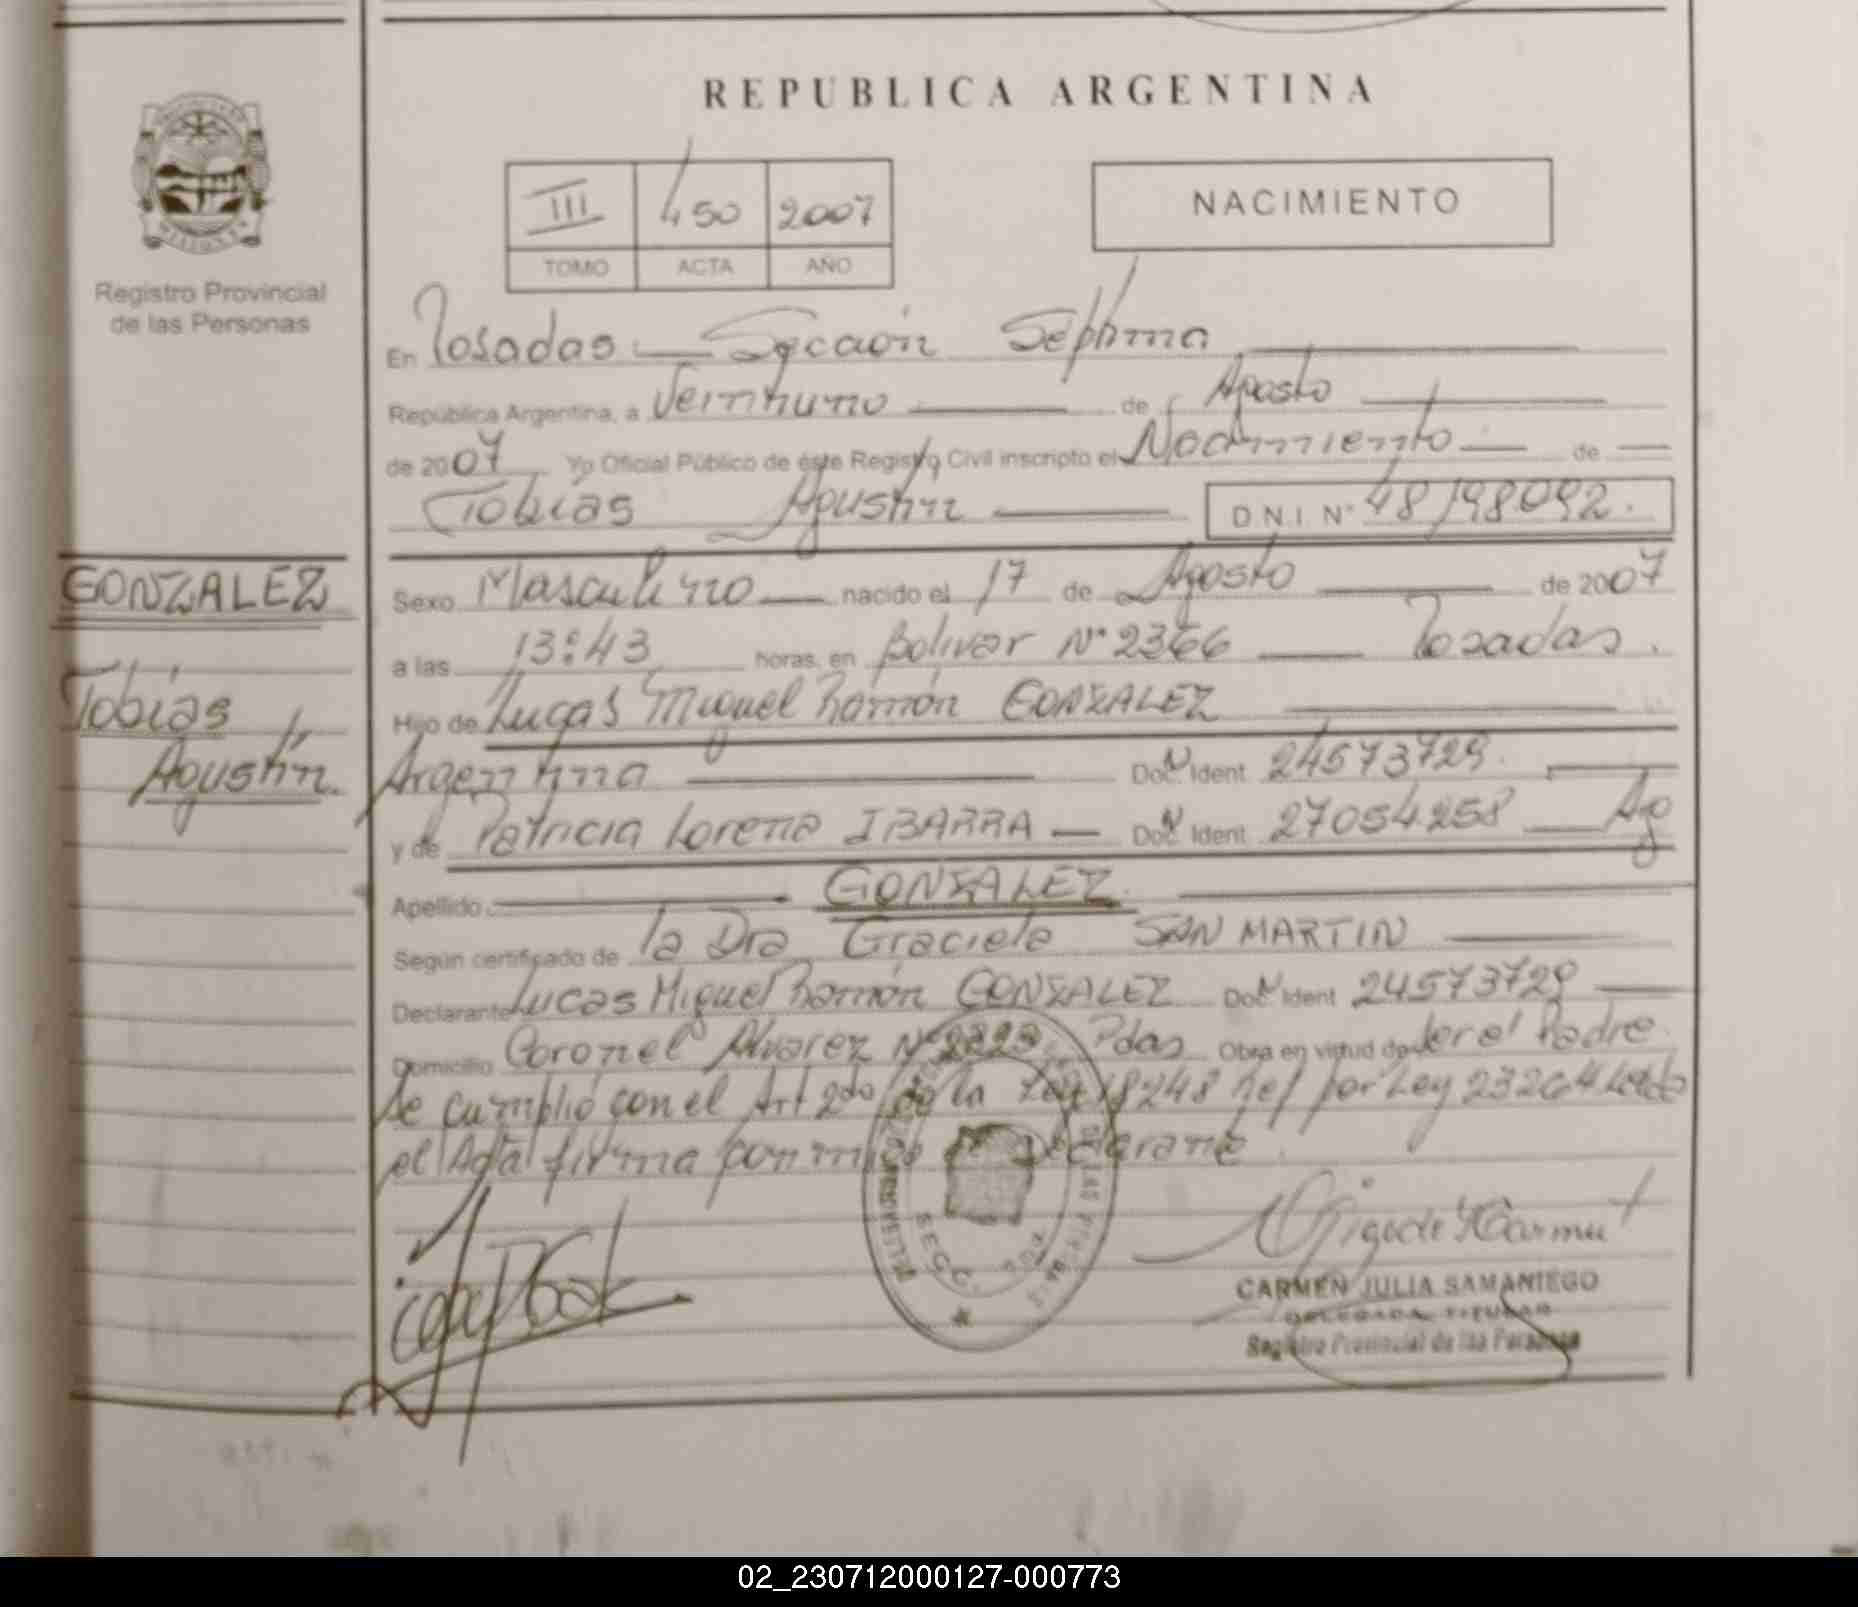 REPUBLICA ARGENTINA
III 450 2007
TOMO ACTA AÑO
NACIMIENTO
Registro Provincial
de las Personas
En Posadas Sección Séptima
República Argentina, a Veintiuno de Agosto
de 2007 Yo Oficial Público de éste Registro Civil inscripto el Nacimiento de
Tobías Agustín D N I Nº 48198092.
GONZALEZ
Tobías
Agustín.
Sexo Masculino nacido el 17 de Agosto de 2007
a las 13:43 horas, en Bolivar Nº 2366 Posadas.
Hijo de Lucas Miguel Ramón GONZALEZ
Argentina Doc. Ident 24573729.
y de Patricia Lorena IBARRA Doc. Ident 27054258 Ag
Apellido GONZALEZ.
Según certificado de la Dra Graciela SAN MARTIN
Declarante Lucas Miguel Ramón GONZALEZ Doc. Ident 24573729
Domicilio Coronel Alvarez Nº Pdas Obra en virtud de Ser el Padre
Se cumplió con el Art 2do de la Ley 18248 por Ley 23264 Leida
el Acta firma conmigo el declarante.
CARMEN JULIA SAMANIEGO
DELEGADA TITULAR
Registro Provincial de las Personas
02_230712000127-000773